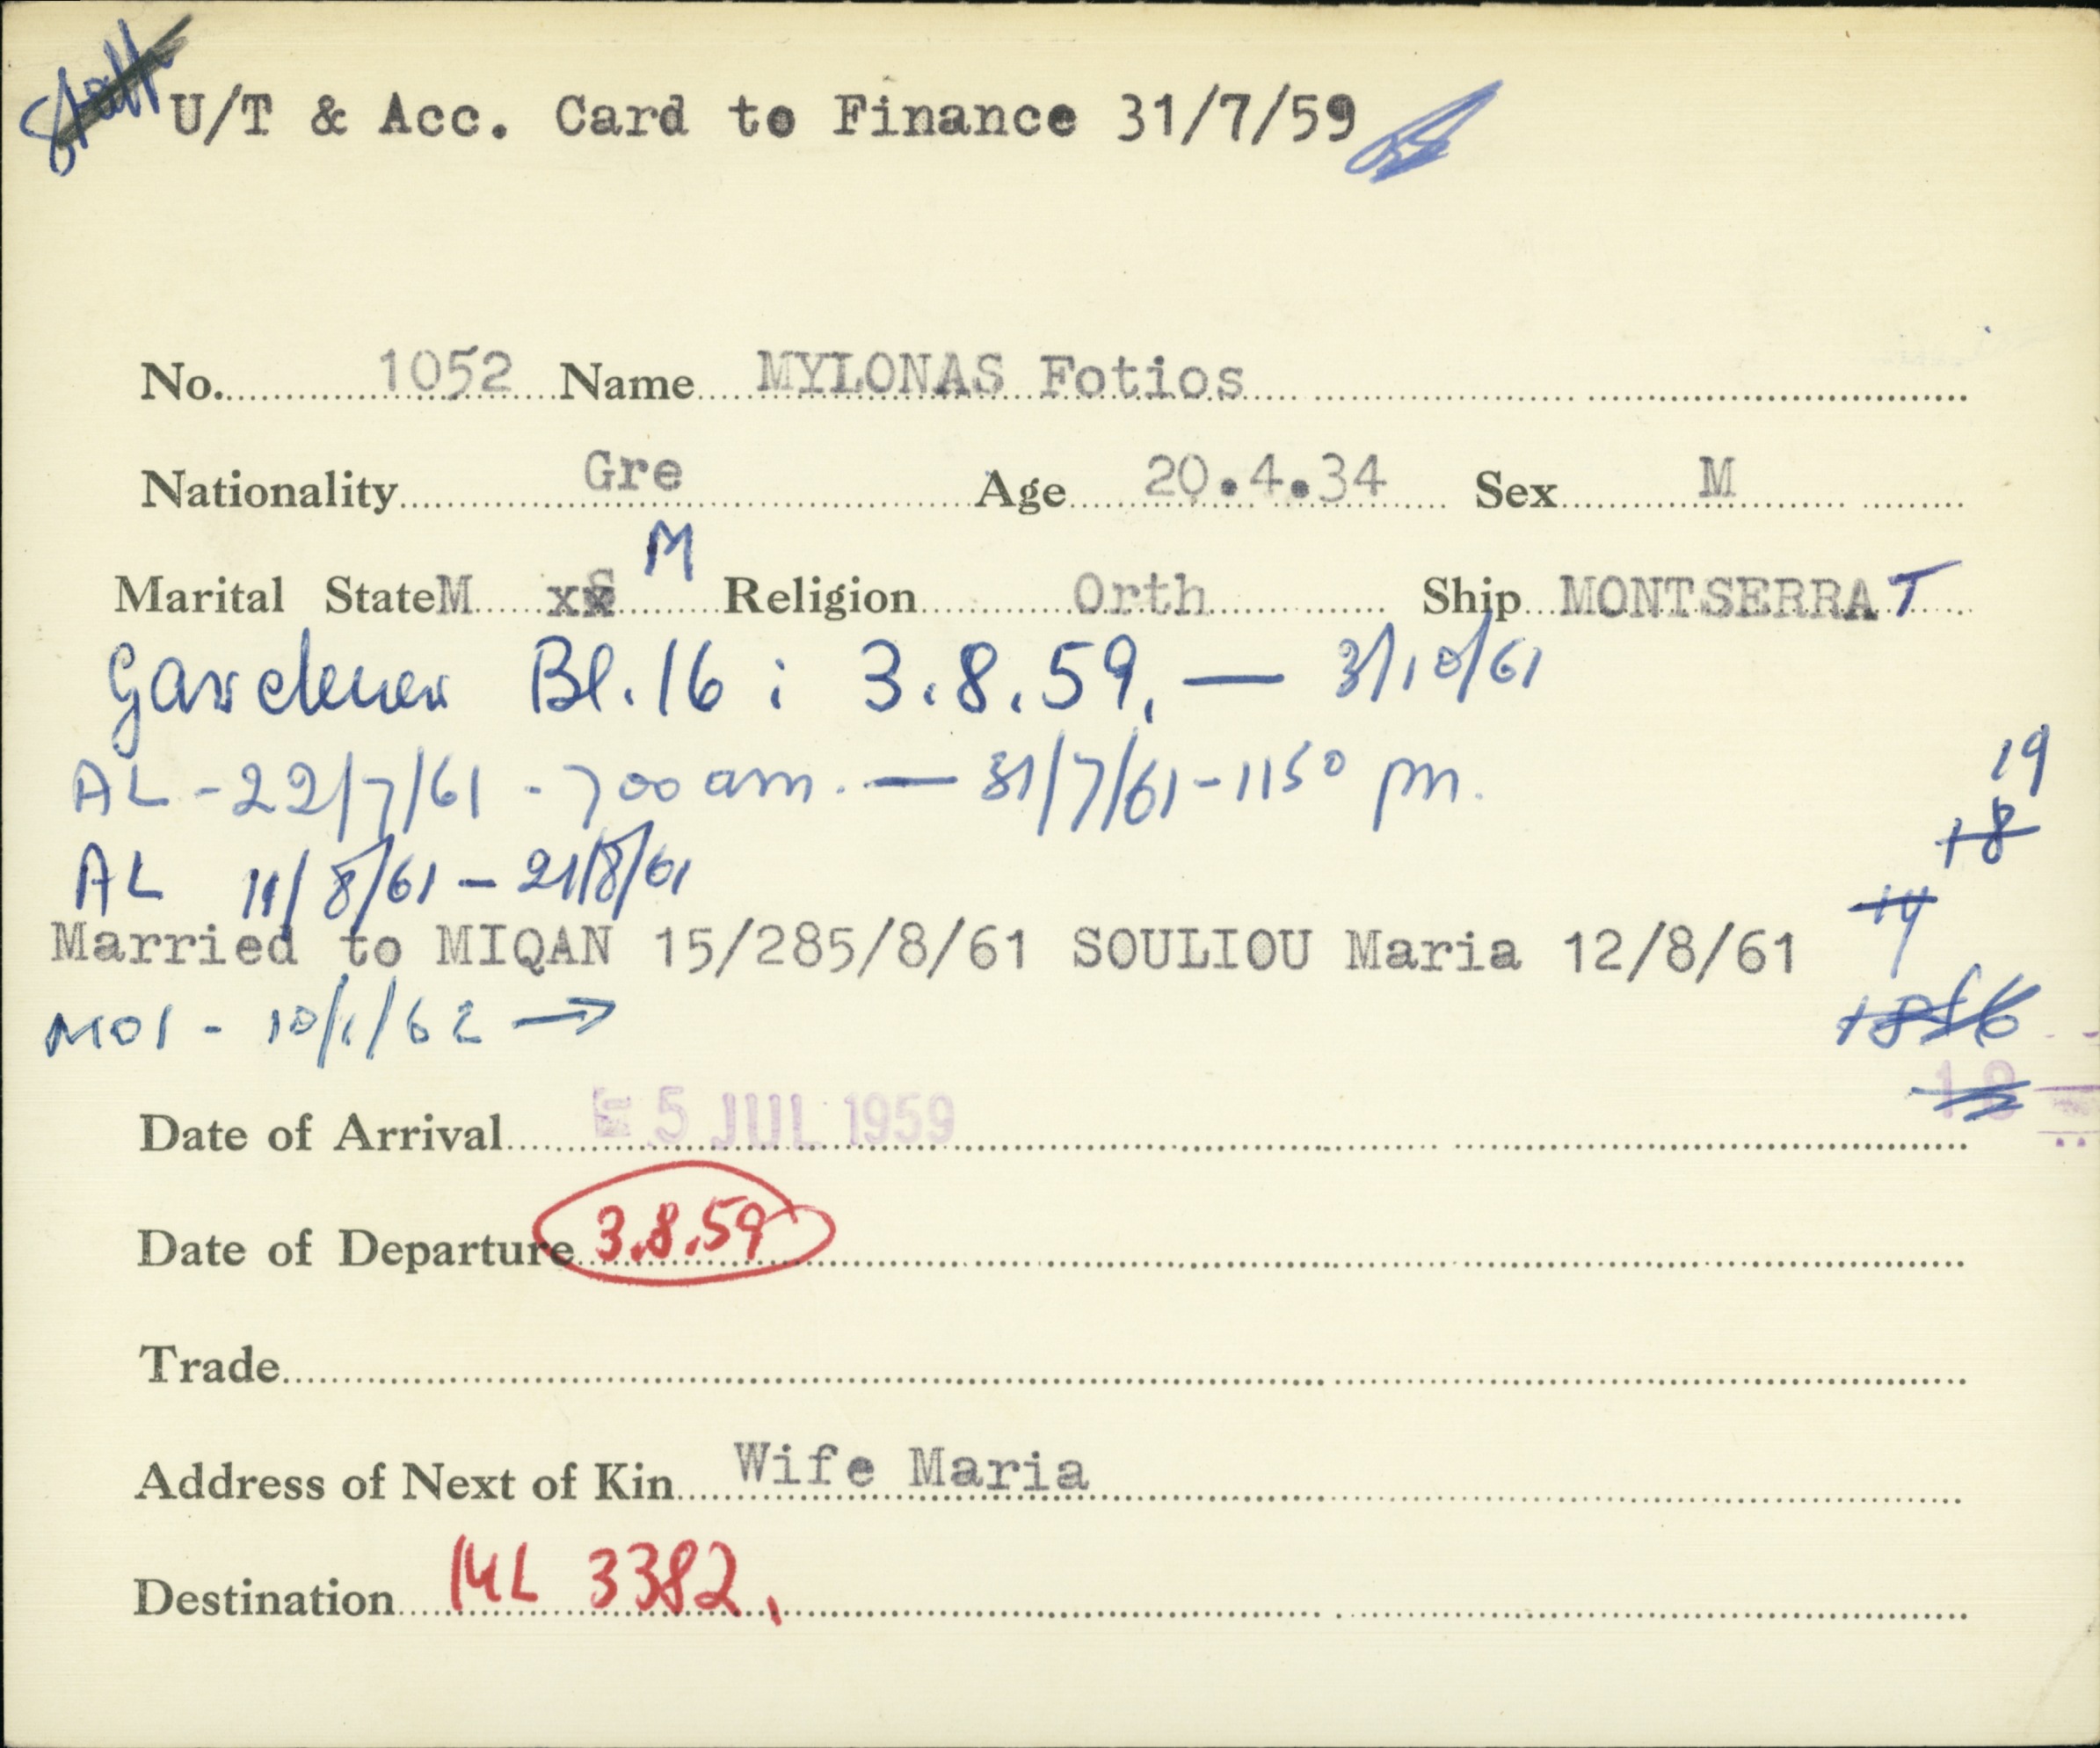 Staff
U/T & Acc. Card to Finance 31/7/59
No. 1052 Name MYLONAS Fotios
Nationality Gre Age 20.4.34 Sex M
Marital State M xx M Religion Orth Ship MONTSERRAT
Gardener Bl.16 : 3.8.59. — 31/10/61
AL - 22/7/61 - 700 am. — 31/7/61 - 1150 pm.
19
18
AL 11/8/61 - 21/8/61
14
Married to MIQAN 15/285/8/61 SOULIOU Maria 12/8/61
MO1 - 10/1/62 →
18
Date of Arrival 5 JUL 1959
Date of Departure 3.8.59
Trade
Address of Next of Kin Wife Maria
Destination ML 3382.